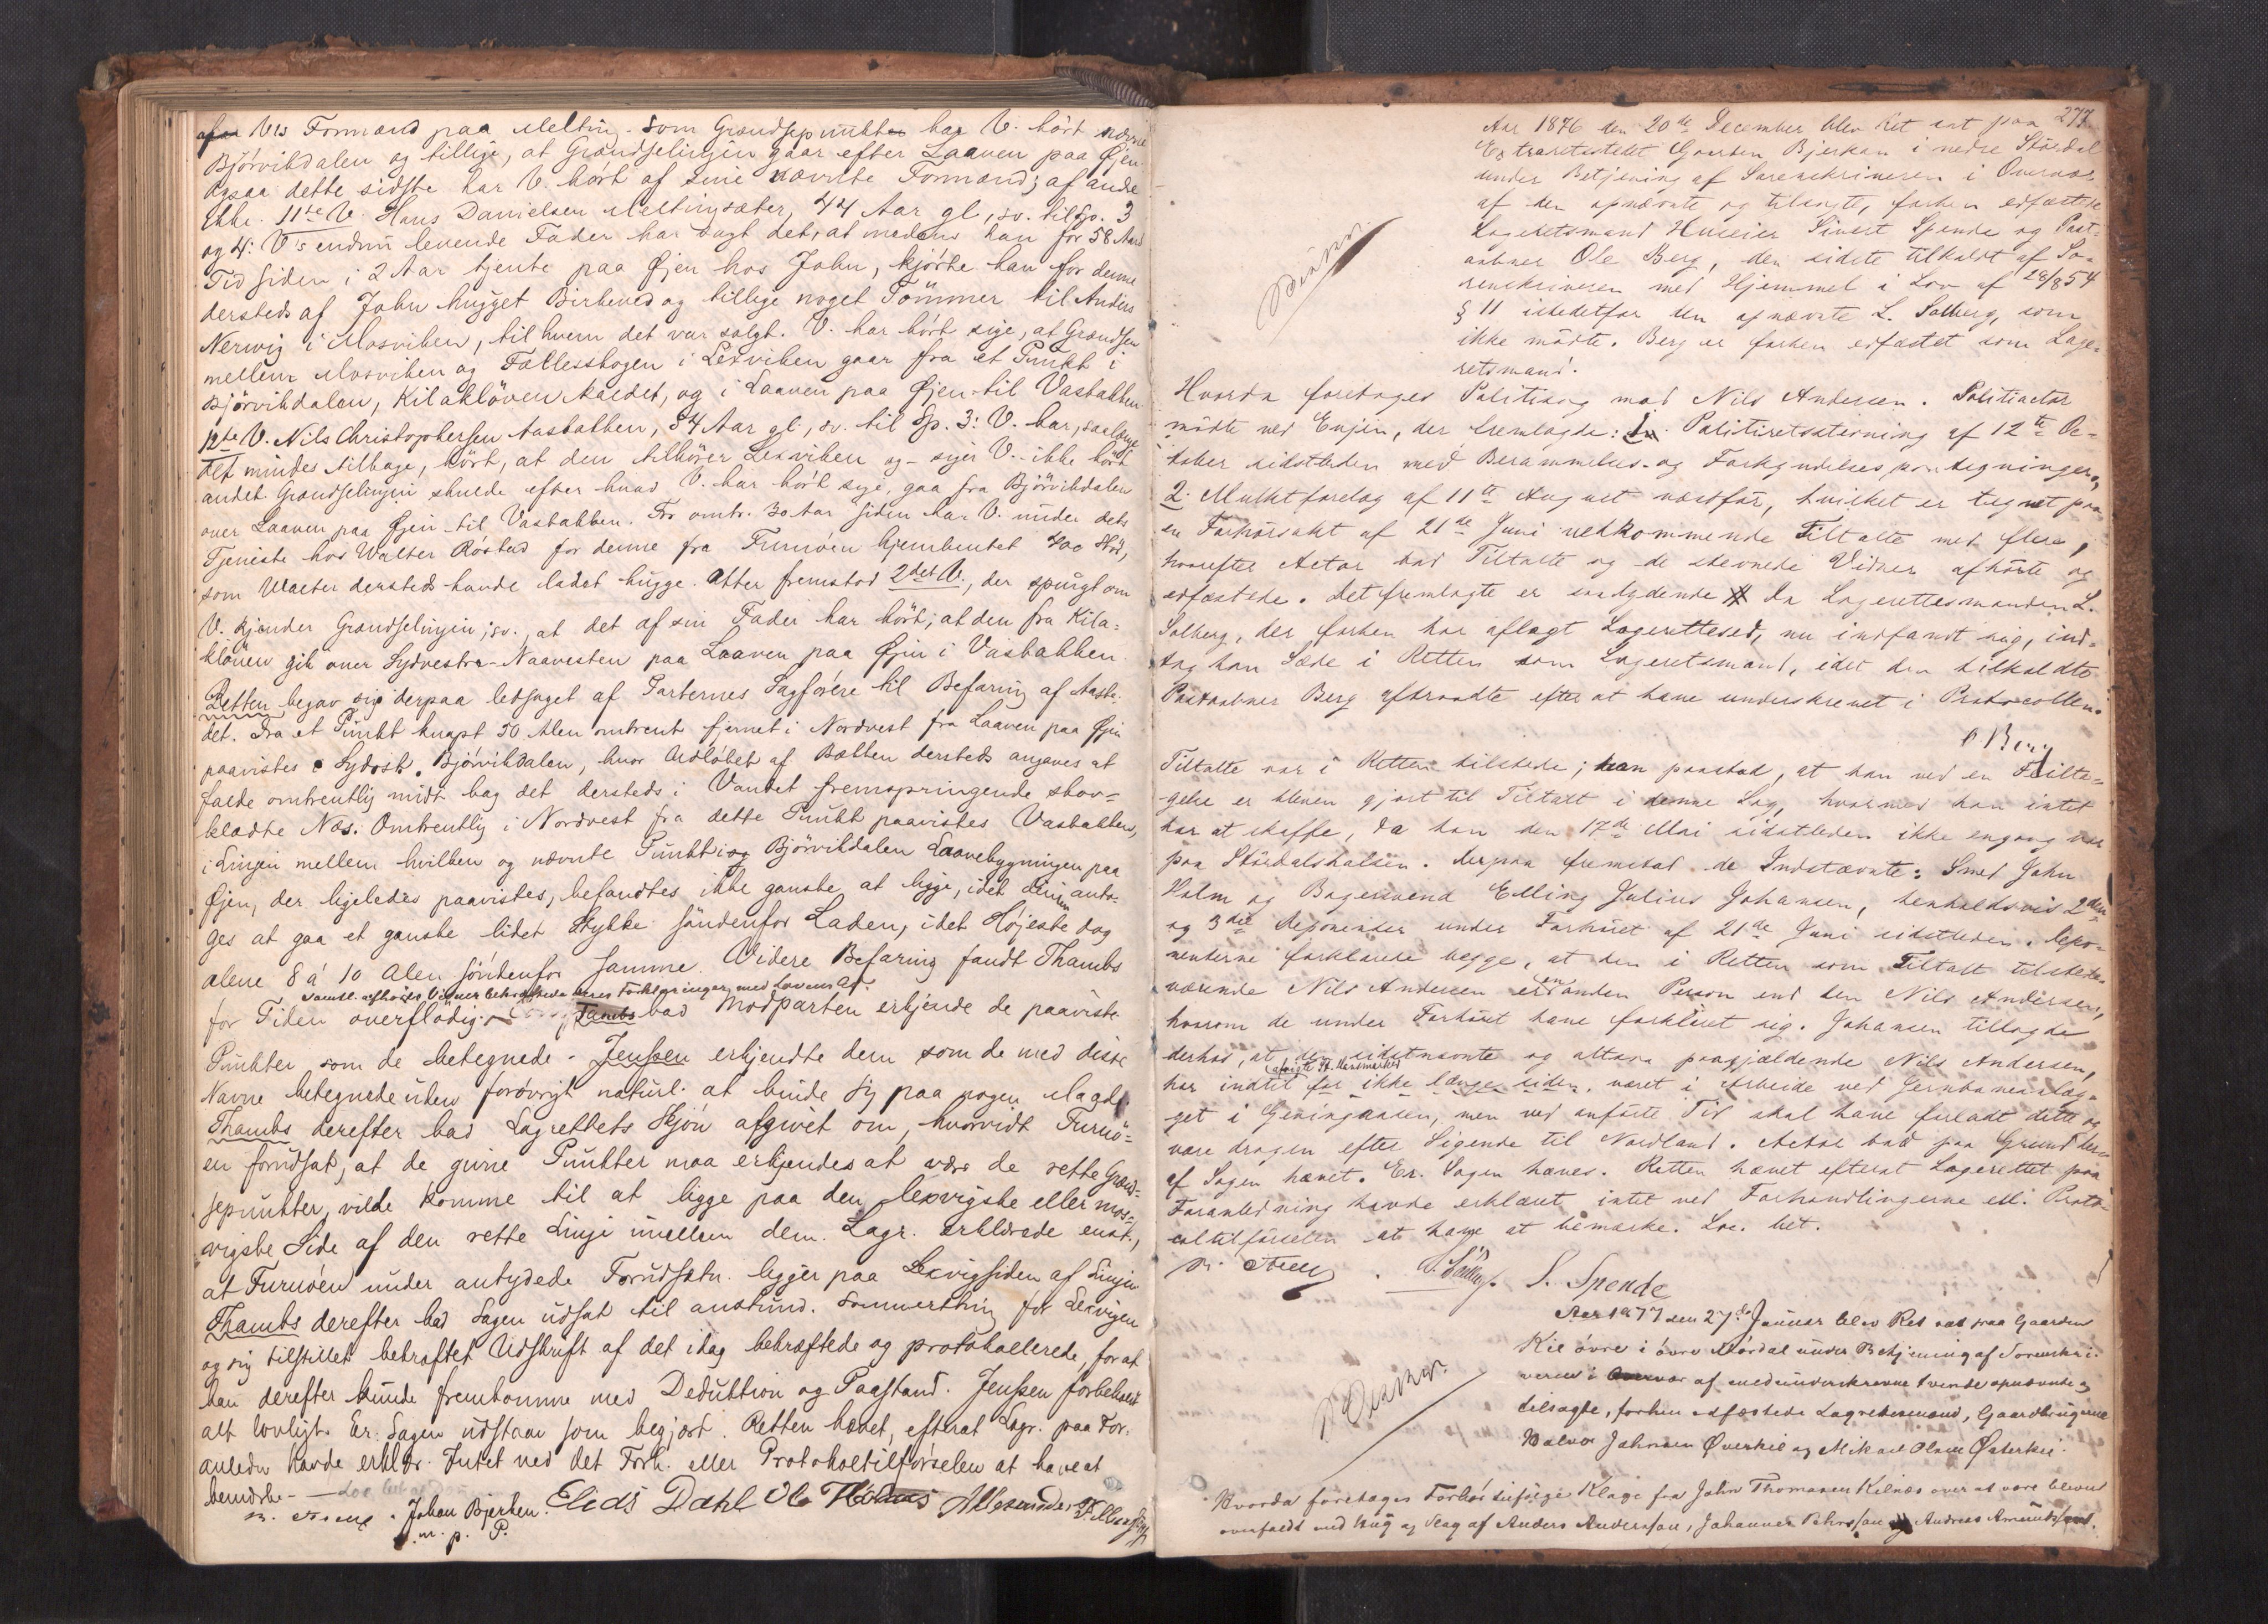 V's Formænd paa Melting. Som Grændsepunkter har V. hørt nævne
Björvikdalen og tillige, at Grændselinjen gaar efter Laaven paa Øjen
ogsaa dette sidste har V. hört af sine nævnte Formænd; af andre
Ikke. 11te V. Hans Danielsen Meltingsæter, 44 Aar gl, sv. til Sp. 3
og 4: V's endnu levende Fader har sagt det, at medens han for 58 Aars
Tid siden i 2 Aar tjente paa Øjen hos John, kjörte han for denne
dersteds af John hugget Birkeved og tillige noget Tömmer til Anders
Nerwig i Mosviken, til hvem det var solgt. V. har hört sige, at Grændsen
mellem Mosviken og Fællesskogen i Lexviken gaar fra et Punkt i
Björvikdalen, Kilaklöven kaldet, og i Laaven paa Øjen til Vasbakken
12te V. Nils Christophersen Aasbakken, 54 Aar gl, sv. til Sp. 3: V. har, saalænge
det mindes tilbage, hört, at den tilhörer Lexviken og - siger V. - ikke hört
andet. Grændselinjen skulde efter hvad V. har hört sige, gaa fra Björvikdalen
over Laaven paa Øjen til Vasbakken. For omtr. 30 Aar siden har V. under dets
Tjeneste hos Walter Röstad for denne fra Furuöen hjembentet 400 Stör,
som Walter dersteds havde ladet hugge. Atter fremstod 2det V., der spurgt om
V. kjender Grændselinjen, sv., at det af sin Fader har hört, at den fra Kila-
klöven gik over Sydvestre-Naavesten paa Laaven paa Øjen i Vasbakken.
Retten begav sig derpaa ledsaget af Parternes Sagförere til Befaring af Aaste-
det. Fra et Punkt knapt 50 Alen omtrent fjernet i Nordvest fra Laaven paa Øjen
paavistes i Sydost. Björvikdalen, hvor Udlöbet af Bækken dersteds angaves at
falde omtrentlig midt bag det dersteds i Vandet fremspringende skov-
klædte Næs. Omtrentlig i Nordvest fra dette Punkt paavistes Vasbakken,
i Linjen mellem hvilken og nævnte Punkt i og Björvikdalen Laavebygningen paa
Øjen, der ligeledes paavistes, befandtes ikke ganske at ligge, idet Linien anto-
ges at gaa et ganske lidet Stykke söndenfor Laden, idet Höjeste dog
alene 8 à 10 Alen söndenfor samme. Videre Befaring fandt Thambs
samtl. afhörte Vidner bekræftede deres Forklaringer med Lovens Ed.
for Tiden overflödig. Thambs bad Modparten erkjende de paaviste
Punkter som de betegnede. Jenssen erkjendte dem som de med disse
Navne betegnede uden forövrigt naturl. at binde sig paa nogen Maade.
Thambs derefter bad Lagrettets Skjön afgivet om, hvorvidt Furuö-
en forudsat, at de givne Punkter maa erkjendes at være de rette Grænd-
sepunkter, vilde komme til at ligge paa den lexvigske eller mos-
vigske Side af den rette Linje imellem dem. Lagr. erklærede enst.,
at Furuöen under antydede Forudsætn. ligger paa Lexvigsiden af Linjen
Thambs derefter bad Sagen udsat til anstund. Sommerthing for Lexvigen
og sig tilstillet bekræftet Udskrift af det idag bekræftede og protokollerede, for at
han derefter kunde fremkomme med Deduktion og Paastand. Jenssen forbeholdt
alt lovligt. Er: Sagen udstaar som begjært. Retten hævet, efterat Lagr. paa For-
anledn havde erklær. Intet ved det Forh. eller Protokoltilförselen at have at
bemærke.
Johan Bjerken. Elias Dahl Ole
m. p. P.
277
Aar 1876 den 20de December blev Ret sat paa
Extraretsstedet Gaarden Bjerkan i nedre Stördal
under Betjening af Sorenskriveren i Overvær
af den opnævnte og tilsagte, forhen edfæstede
Lagretsmand Huseier Sivert Spende og Post-
aabner Ole Berg, den sidste tilkaldt af So-
renskriveren med Hjemmel i Lov af 28/8 54
§ 11 istedetfor den opnævnte L. Solberg, som
ikke mödte. Berg er forhen edfæstet som Lage-
retsmand.
Hvorda foretoges Politisag mod Nils Andersen. Politiactor
mödte ved Enjen, der fremlagde: 1. Politiretsstevning af 12te Oc-
tober sidstleden med Berammelses- og Forkyndelsespaategninger,
2. Mulktforelæg af 11te August næstför, hvilket er tegnet paa
en Forhörsakt af 21de Juni vedkommende Tiltalte med flere,
hvorefter Actor bad Tiltalte og de stevnede Vidner afhörte og
edfæstede. Det fremlagte er saalydende Da Lagerettesmanden L.
Solberg, der forhen har aflagt Lagerettesed, nu indfandt sig, ind-
tog han Sæde i Retten som Lageretsmand, idet den tilkaldte
Postaabner Berg aftraadte efter at have underskrevet i Protocollen.
O Berg
Tiltalte var i Retten tilstede; han paastod, at han ved en Feilta-
gelse er bleven gjort til Tiltalt i denne Sag, hvormed han intet
har at skaffe, da han den 17de Mai sidstleden ikke engang var
paa Stördalshalsen. Derpaa fremstod de Indstævnte: Smed John
Holm og Bagersvend Elling Julius Johansen, henholdsvis 2den
og 3die Deponenter under Forhöret af 21de Juni sidstleden. Depo-
nenterne forklarede begge, at den i Retten som Tiltalt tilstede-
værende Nils Andersen er en anden Person end den Nils Andersen,
hvorom de under Forhöret have forklaret sig. Johansen tillagde
derhos, at den sidstnævnte og altsaa paagjældende Nils Andersen,
har indtil for ikke længe siden, været i Arbeide ved Jernbaneanlæg-
get i Gevingaasen, men ved anförte Tid skal have forladt dette og
være dragen efter Sigende til Nordland. Actor bad paa Grund her-
af Sagen hævet. Er. Sagen hæves. Retten hævet efterat Lagerettet paa
Foranledning havde erklæret intet ved Forhandlingerne ell. Proto-
coltilförselen at have at bemærke. Loc. bet.
L. Solberg. S. Spende
Aar 1877 den 27de Januar blev Ret sat paa Gaarden
Kil övre i övre Stördal under Betjening af Sorenskri-
veren i Overvær af medunderskrevne tvende opnævnte og
tilsagte, forhen edfæstede Lagrettesmænd, Gaardbrugerne
Halvor Johnsen Øverkil og Mikael Olsen Østerkil.
Hvorda foretages Forhör ifölge Klage fra John Thomasen Kilnæs over at være bleven
overfaldt med Hug og Slag af Anders Anderssen, Johannes Pehrsson og Andreas Amundssen.